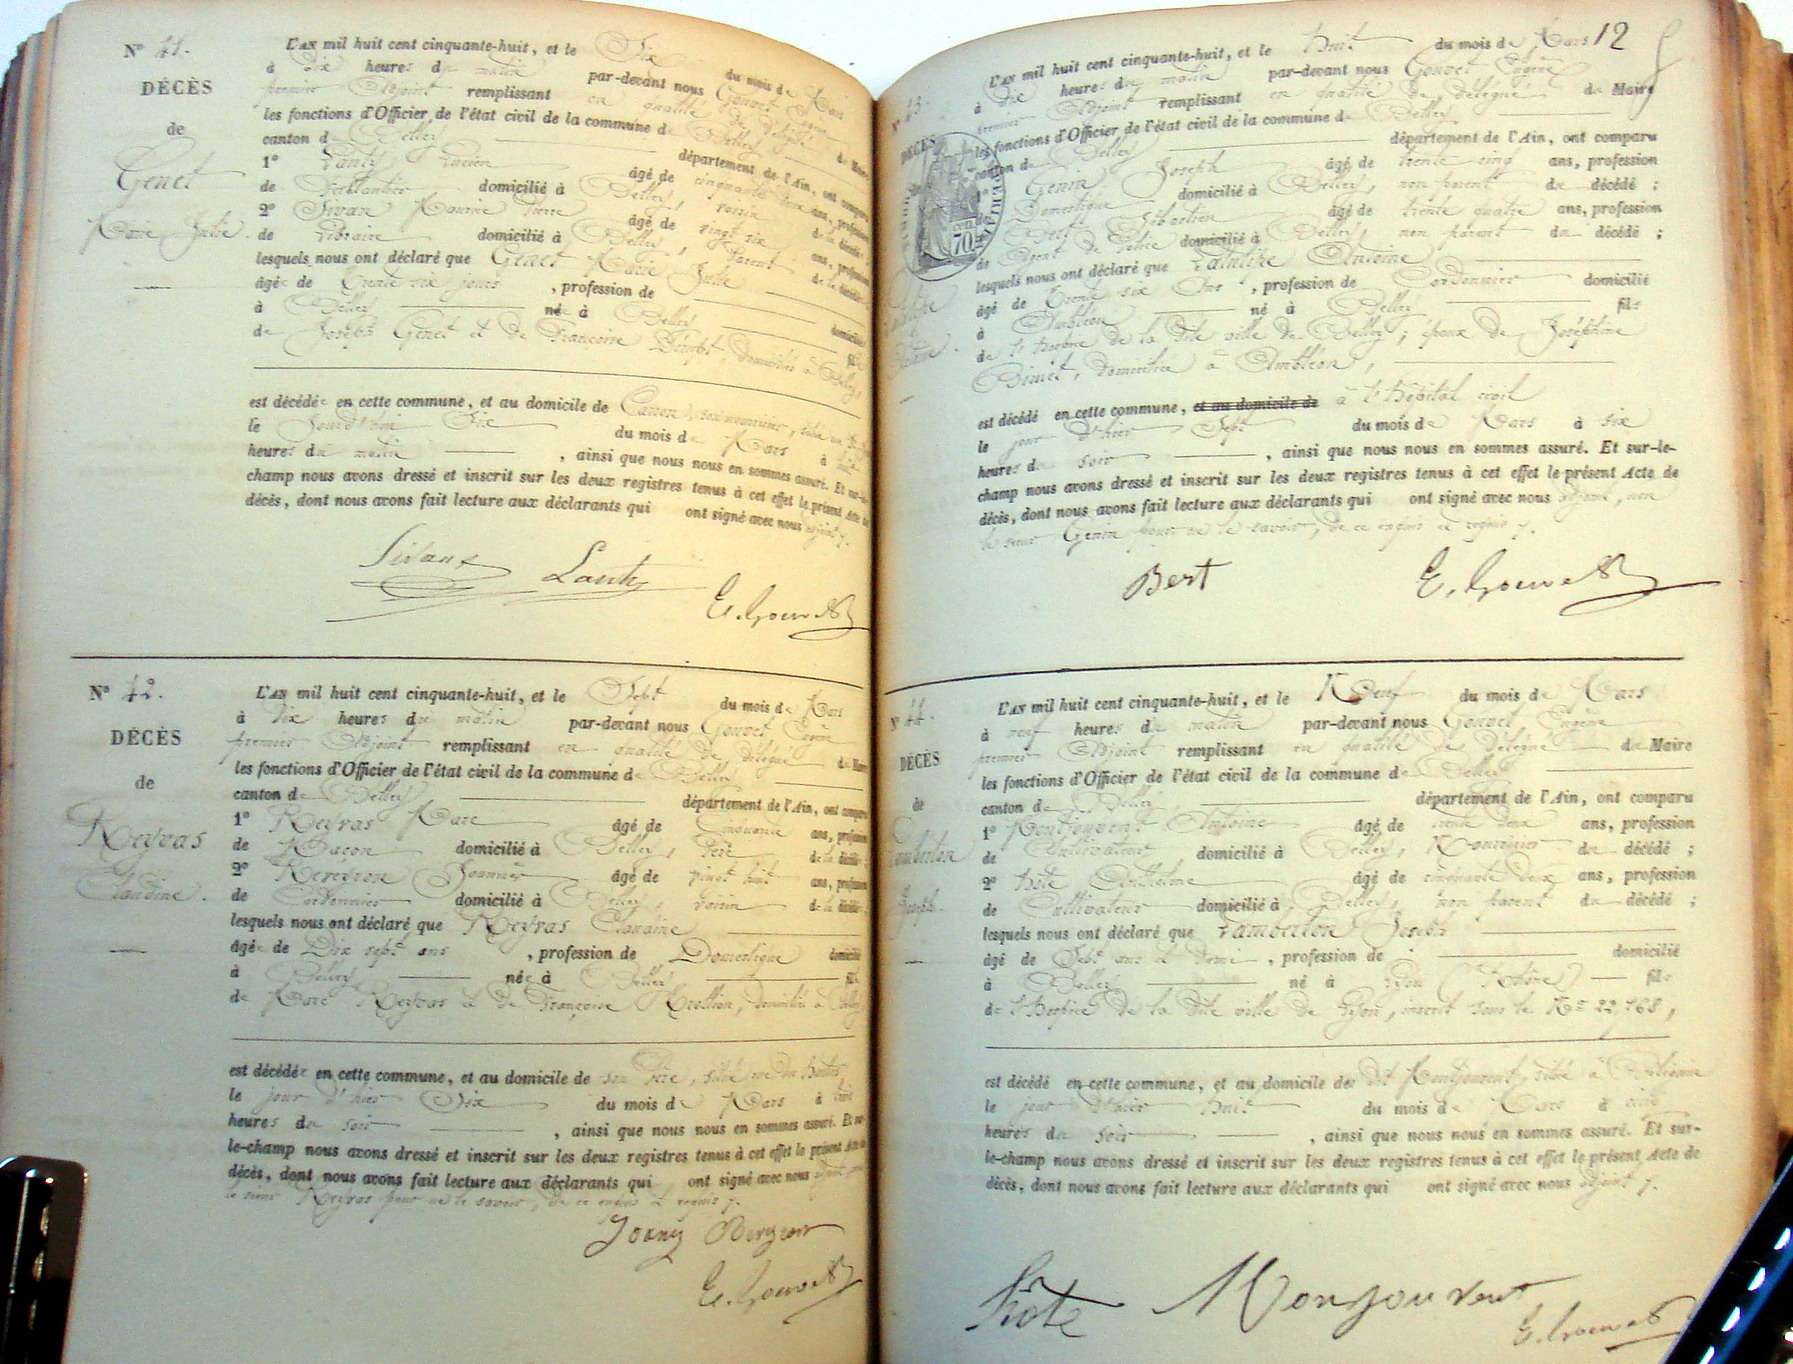 N° 41.
DÉCÈS
de
Genet
Marie Julie.
L'AN mil huit cent cinquante-huit, et le Six du mois de Mars
à Dix heures du matin par-devant nous Gouvet Eugène
premier Adjoint remplissant en qualité de délégué du Maire
les fonctions d'Officier de l'état civil de la commune de Belley
canton de Belley département de l'Ain, ont comparu
1° âgé de cinquante ans, profession
de domicilié à Belley, voisin de la décédée;
2° Sivan Maurice Pierre âgé de vingt six ans, profession
de Libraire domicilié à Belley, parent de la décédée
lesquels nous ont déclaré que Genet Marie Julie
âgée de trente six jours, profession de domiciliée
à Belley née à Belley fille
de Joseph Genet et de Françoise domiciliés à Belley,
est décédée en cette commune, et au domicile de
le jourd'hui Six du mois de Mars à
heures du matin, ainsi que nous nous en sommes assuré. Et sur-le-
champ nous avons dressé et inscrit sur les deux registres tenus à cet effet le présent Acte de
décès, dont nous avons fait lecture aux déclarants qui ont signé avec nous adjoint.
Sivan
E. Gouvet
N° 42.
DÉCÈS
de
Reyras
Claudine.
L'AN mil huit cent cinquante-huit, et le Sept du mois de Mars
à Dix heures du matin par-devant nous Gouvet Eugène
premier Adjoint remplissant en qualité de délégué du Maire
les fonctions d'Officier de l'état civil de la commune de Belley
canton de Belley département de l'Ain, ont comparu
1° Reyras Marc âgé de Cinquante ans, profession
de Maçon domicilié à Belley, Père de la décédée
2° âgé de vingt huit ans, profession
de Cordonnier domicilié à Belley, voisin de la décédée
lesquels nous ont déclaré que Reyras Claudine
âgée de Dix sept ans, profession de Domestique domiciliée
à Belley née à Belley fille
de Marc Reyras et de Françoise domiciliés à Belley
est décédée en cette commune, et au domicile de son Père,
le jour d'hier Six du mois de Mars à
heures du soir, ainsi que nous nous en sommes assuré. Et sur-
le-champ nous avons dressé et inscrit sur les deux registres tenus à cet effet le présent Acte de
décès, dont nous avons fait lecture aux déclarants qui ont signé avec nous adjoint, non
le sieur Reyras pour ne le savoir, de ce enquis et requis.
E. Gouvet
12
N° 43.
DÉCÈS
L'AN mil huit cent cinquante-huit, et le huit du mois de Mars
à Dix heures du matin par-devant nous Gouvet Eugène
premier Adjoint remplissant en qualité de délégué du Maire
les fonctions d'Officier de l'état civil de la commune de Belley
canton de Belley département de l'Ain, ont comparu
Genin Joseph âgé de trente cinq ans, profession
Domestique domicilié à Belley, non parent du décédé;
Bert Sébastien âgé de trente quatre ans, profession
de Agent de Police domicilié à Belley, non parent du décédé;
70
lesquels nous ont déclaré que Antoine
âgé de trente six Ans, profession de Cordonnier domicilié
à Ambléon né à Belley fils
de l'hospice de la dite ville de Belley; époux de Joséphine
Binet, domiciliée à Ambléon,
est décédé en cette commune, et au domicile de à l'hôpital civil
le jour d'hier Sept du mois de Mars à six
heures du soir, ainsi que nous nous en sommes assuré. Et sur-le-
champ nous avons dressé et inscrit sur les deux registres tenus à cet effet le présent Acte de
décès, dont nous avons fait lecture aux déclarants qui ont signé avec nous adjoint, non
le sieur Genin pour ne le savoir, de ce enquis et requis.
Bert
E. Gouvet
N° 44.
DÉCÈS
de
Lamberton
Joseph.
L'AN mil huit cent cinquante-huit, et le Neuf du mois de Mars
à neuf heures du matin par-devant nous Gouvet Eugène
premier Adjoint remplissant en qualité de délégué du Maire
les fonctions d'Officier de l'état civil de la commune de Belley
canton de Belley département de l'Ain, ont comparu
1° Montjouvent Antoine âgé de trente deux ans, profession
de Cultivateur domicilié à Belley, Nourricier du décédé;
2° hôte Anthelme âgé de cinquante deux ans, profession
de Cultivateur domicilié à Belley, non parent du décédé;
lesquels nous ont déclaré que Lamberton Joseph
âgé de Sept ans et demi, profession de domicilié
à Belley né à Lyon (Rhône) fils
de l'hospice de la dite ville de Lyon, inscrit sous le N° 22,768,
est décédé en cette commune, et au domicile de dit Montjouvent, situé à
le jour d'hier huit du mois de Mars à cinq
heures du soir, ainsi que nous nous en sommes assuré. Et sur-
le-champ nous avons dressé et inscrit sur les deux registres tenus à cet effet le présent Acte de
décès, dont nous avons fait lecture aux déclarants qui ont signé avec nous adjoint.
hôte Monjouvent
E. Gouvet